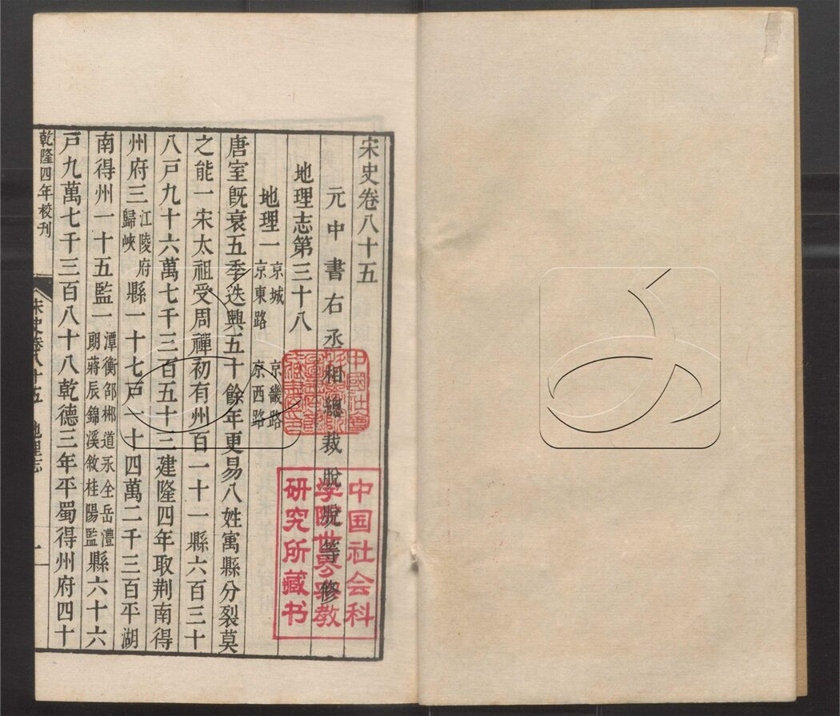 宋史卷八十五
元中書右丞相總裁脫脫等修
地理志第三十八
地理一 京城 京畿路 京東路 京西路
唐室旣衰五季迭興五十餘年更易八姓寓縣分裂莫
之能一宋太祖受周禪初有州百一十一縣六百三十
八戸九十六萬七千三百五十三建隆四年取荆南得
州府三 江陵府 歸峽 縣一十七戸一十四萬二千三百平湖
南得州一十五監一 潭衡邵郴道永全岳澧 朗蔣辰錦溪敘桂陽監 縣六十六
戸九萬七千三百八十八乾德三年平蜀得州府四十
乾隆四年校刊
宋史卷八十五 地理志 一
中国社会科
学院世界宗教
研究所藏书